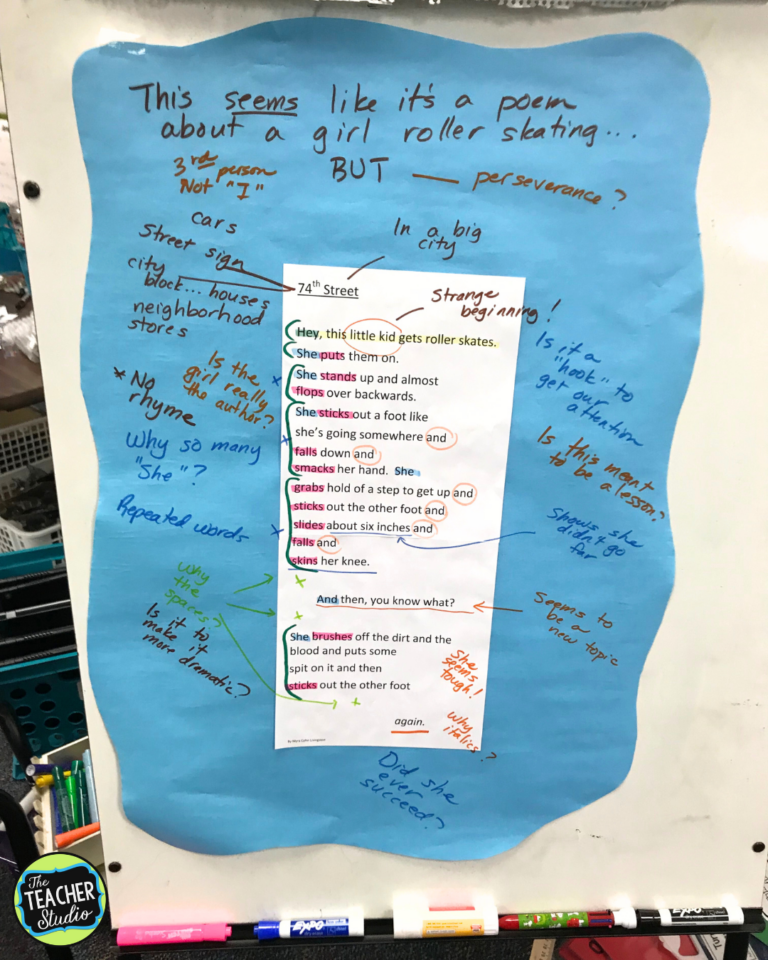 This seems like it's a poem
about a girl roller skating...
BUT — perseverance?
3rd person
Not "I"
cars
Street sign
city
block... houses
neighborhood
stores
In a big
city
74th Street
Strange
beginning!
Hey, this little kid gets roller skates.
She puts them on.
She stands up and almost
flops over backwards.
She sticks out a foot like
she's going somewhere and
falls down and
smacks her hand. She
grabs hold of a step to get up and
sticks out the other foot and
slides about six inches and
falls and
skins her knee.
And then, you know what?
She brushes off the dirt and the
blood and puts some
spit on it and then
sticks out the other foot
again.
By Myra Cohn Livingston
Is the
girl really
the author?
* No
rhyme
Why so many
"She"?
Repeated words
Why
the
spaces?
Is it to
make it
more dramatic?
Is it a
"hook" to
get our
attention
Is this meant
to be a lesson?
Shows she
didn't go
far
Seems to
be a
new topic
She
seems
tough!
Why
italics?
Did she
ever
succeed?
The
TEACHER
Studio
EXPO
EXPO